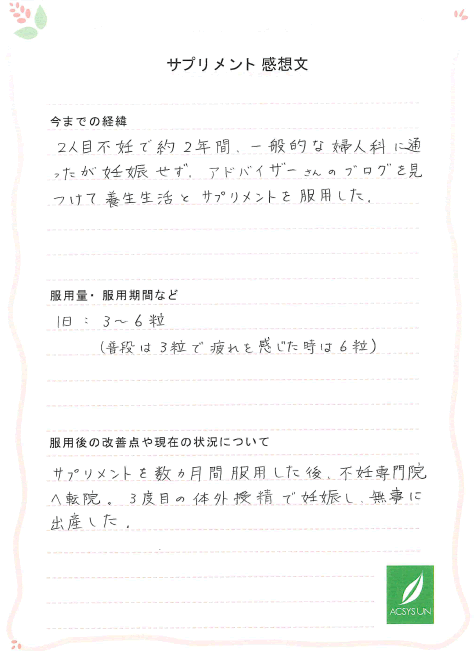 サプリメント 感想文
今までの経緯
2人目不妊で約2年間、一般的な婦人科に通
ったが妊娠せず、アドバイザーさんのブログを見
つけて養生生活とサプリメントを服用した。
服用量・服用期間など
1日：3〜6粒
(普段は3粒で疲れを感じた時は6粒)
服用後の改善点や現在の状況について
サプリメントを数ヵ月間服用した後、不妊専門院
へ転院。3度目の体外授精で妊娠し、無事に
出産した。
ACSYSUN